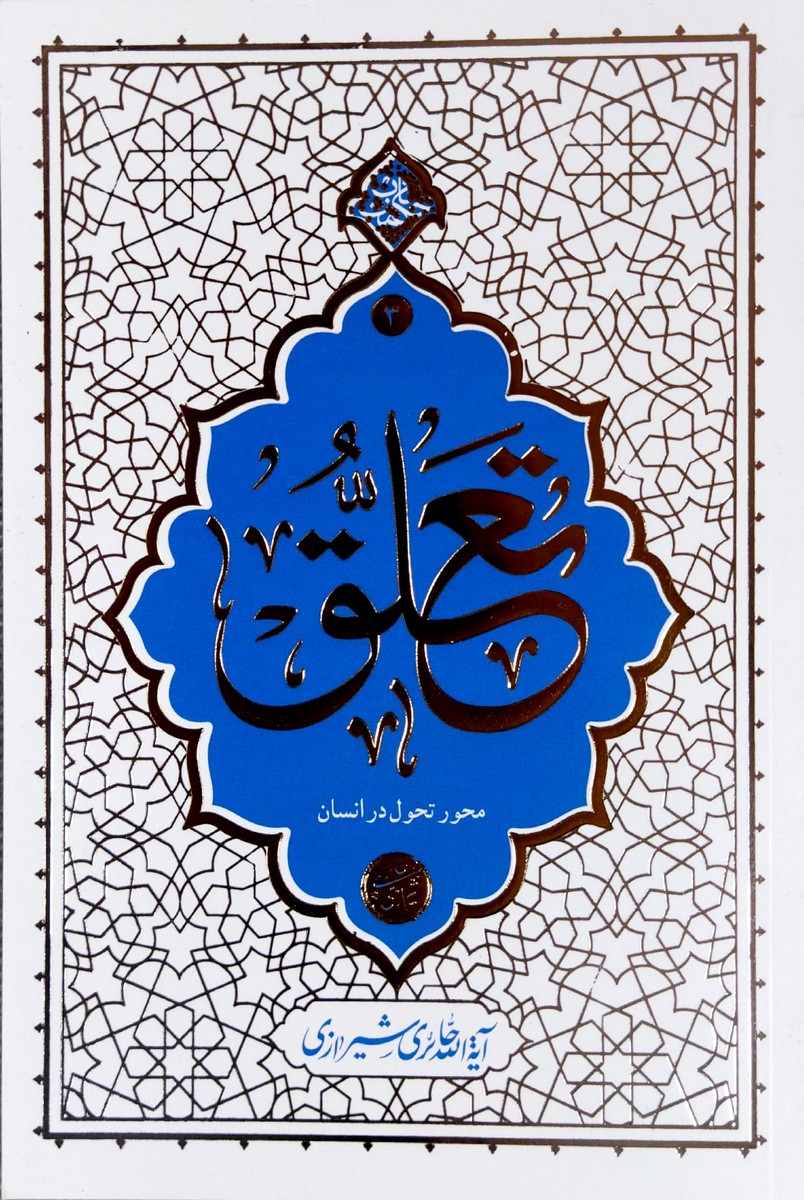 ۳
تعلّق
محور تحول در انسان
آیةالله حائری شیرازی